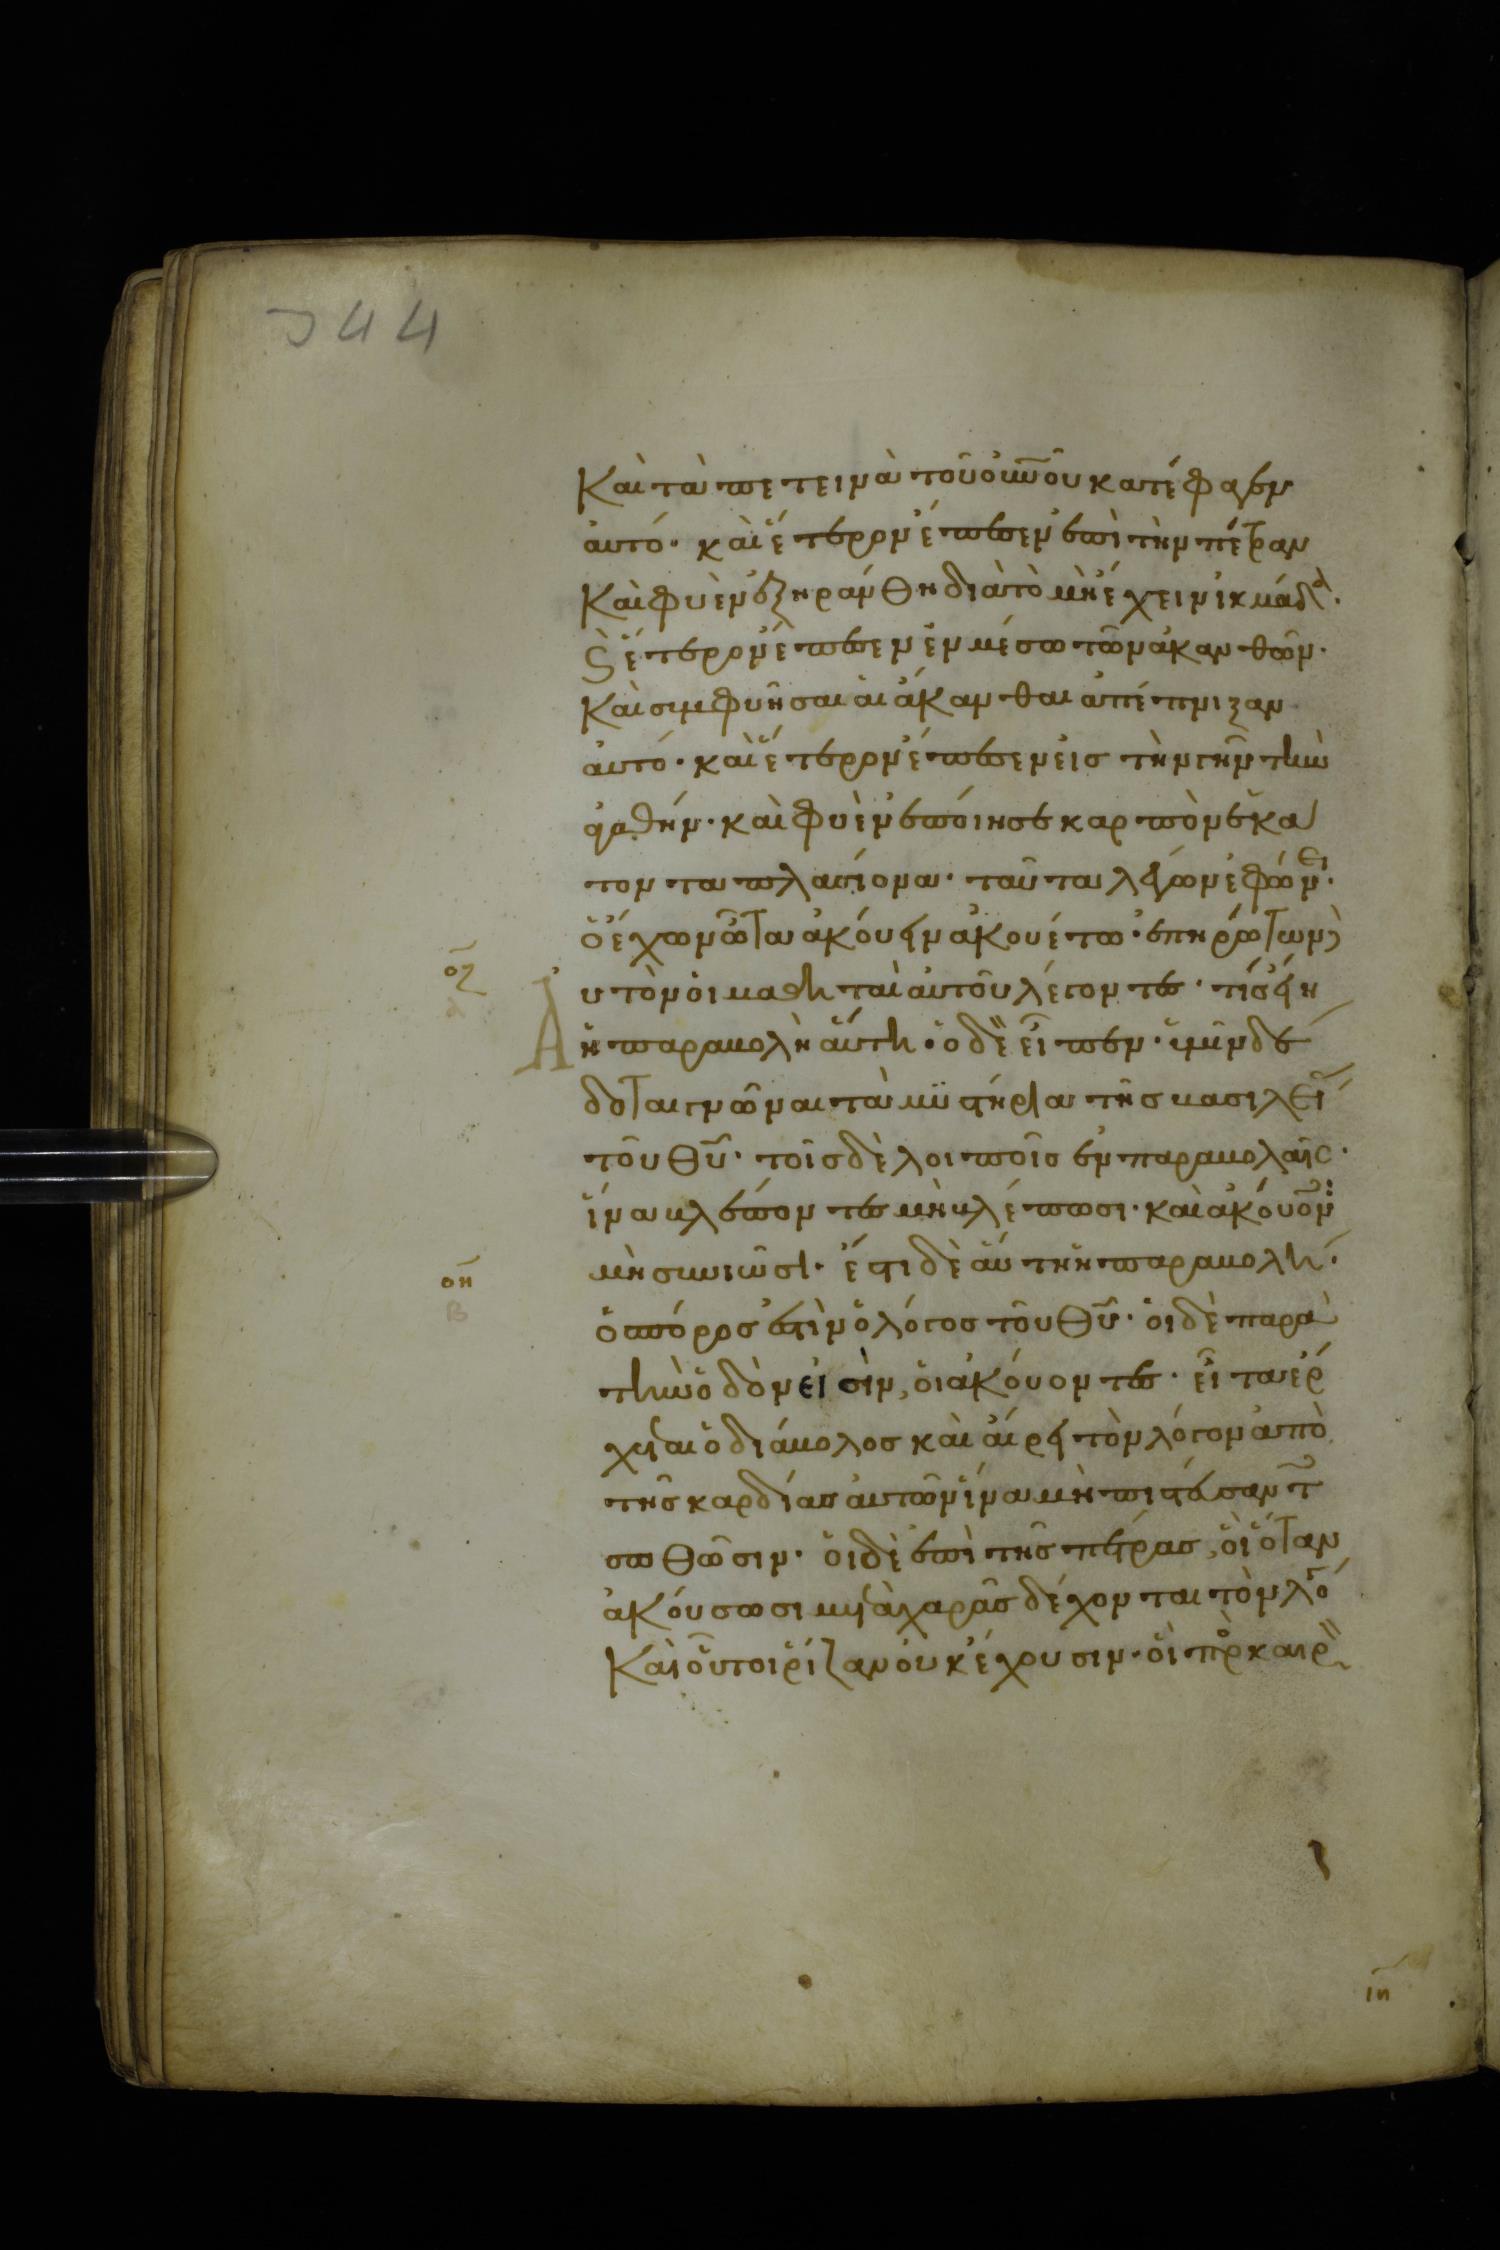 344
Καὶ τὰ πετεινὰ τοῦ οὐ̅νου κατέφαγεν
αὐτό· καὶ ἕτερον ἔπεσεν ἐπὶ τὴν πέτραν
Καὶ φυὲν ἐξηράνθη διὰ τὸ μὴ ἔχειν ἰκμάδα·
Ϛ̀ ἕτερον ἔπεσεν ἐν μέσω τῶν ἀκανθῶν·
Καὶ σιμφυῆσαι αἱ ἄκανθαι ἀπέπνιξαν
αὐτό· καὶ ἕτερον ἔπεσεν εἰς τὴν γῆν τὴν
ἀγαθήν· καὶ φυὲν ἐποίησε καρπὸν ἑκα
τονταπλασίονα· ταῦτα λέγων ἐφώνει·
ὁ ἔχων ὦτα ἀκούειν ἀκουέτω· ἐπηρώτων δὲ
οζ
αὐτὸν οἱ μαθηταὶ αὐτοῦ λέγοντες· τίς εἴη
ἡ παραβολὴ αὕτη· ὁ δὲ εἶπεν· ὑμῖν δέ
δοται γνῶναι τὰ μυστήρια τῆς βασιλεί
τοῦ Θυ̅· τοῖς δὲ λοιποῖς ἐν παραβολαῖς·
ἵνα βλέποντες μὴ βλέπωσι· καὶ ἀκούον
οη
μὴ συνιῶσι· ἔστι δὲ αὕτη ἡ παραβολή·
ὁ σπόρος ἐστὶν ὁ λόγος τοῦ Θυ̅· οἱ δὲ παρὰ
β
τὴν ὁδὸν εἰσὶν, οἱ ἀκούοντες· εἶτα ἔρ
χεται ὁ διάβολος καὶ αἴρει τὸν λόγον ἀπὸ
τῆς καρδίας αὐτῶν ἵνα μὴ πιστεύσαντ
σωθῶσιν· οἱ δὲ ἐπὶ τῆς πέτρας, οἳ ὅταν
ἀκούσωσι μετὰ χαρᾶς δέχονται τὸν λό
Καὶ οὗτοι ῥίζαν οὐκ ἔχουσιν· οἳ πρ̀ο καιρ
ιη